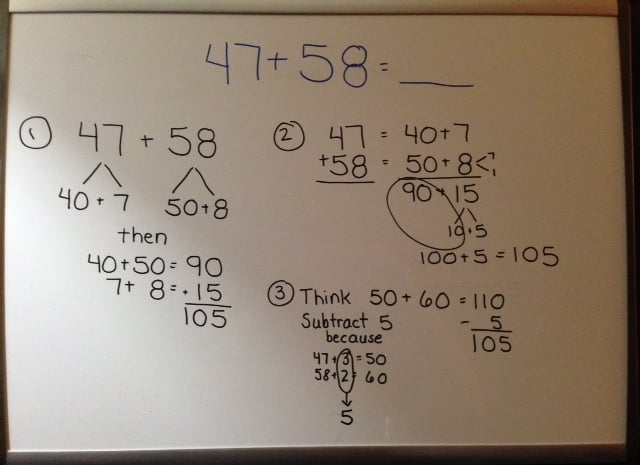 47 + 58 = ____
① 47 + 58
40 + 7 50 + 8
then
40 + 50 = 90
7 + 8 = + 15
105
② 47 = 40 + 7
+ 58 = 50 + 8
90 + 15
10 + 5
100 + 5 = 105
③ Think 50 + 60 = 110
Subtract 5 - 5
because 105
47 + 3 = 50
58 + 2 = 60
5